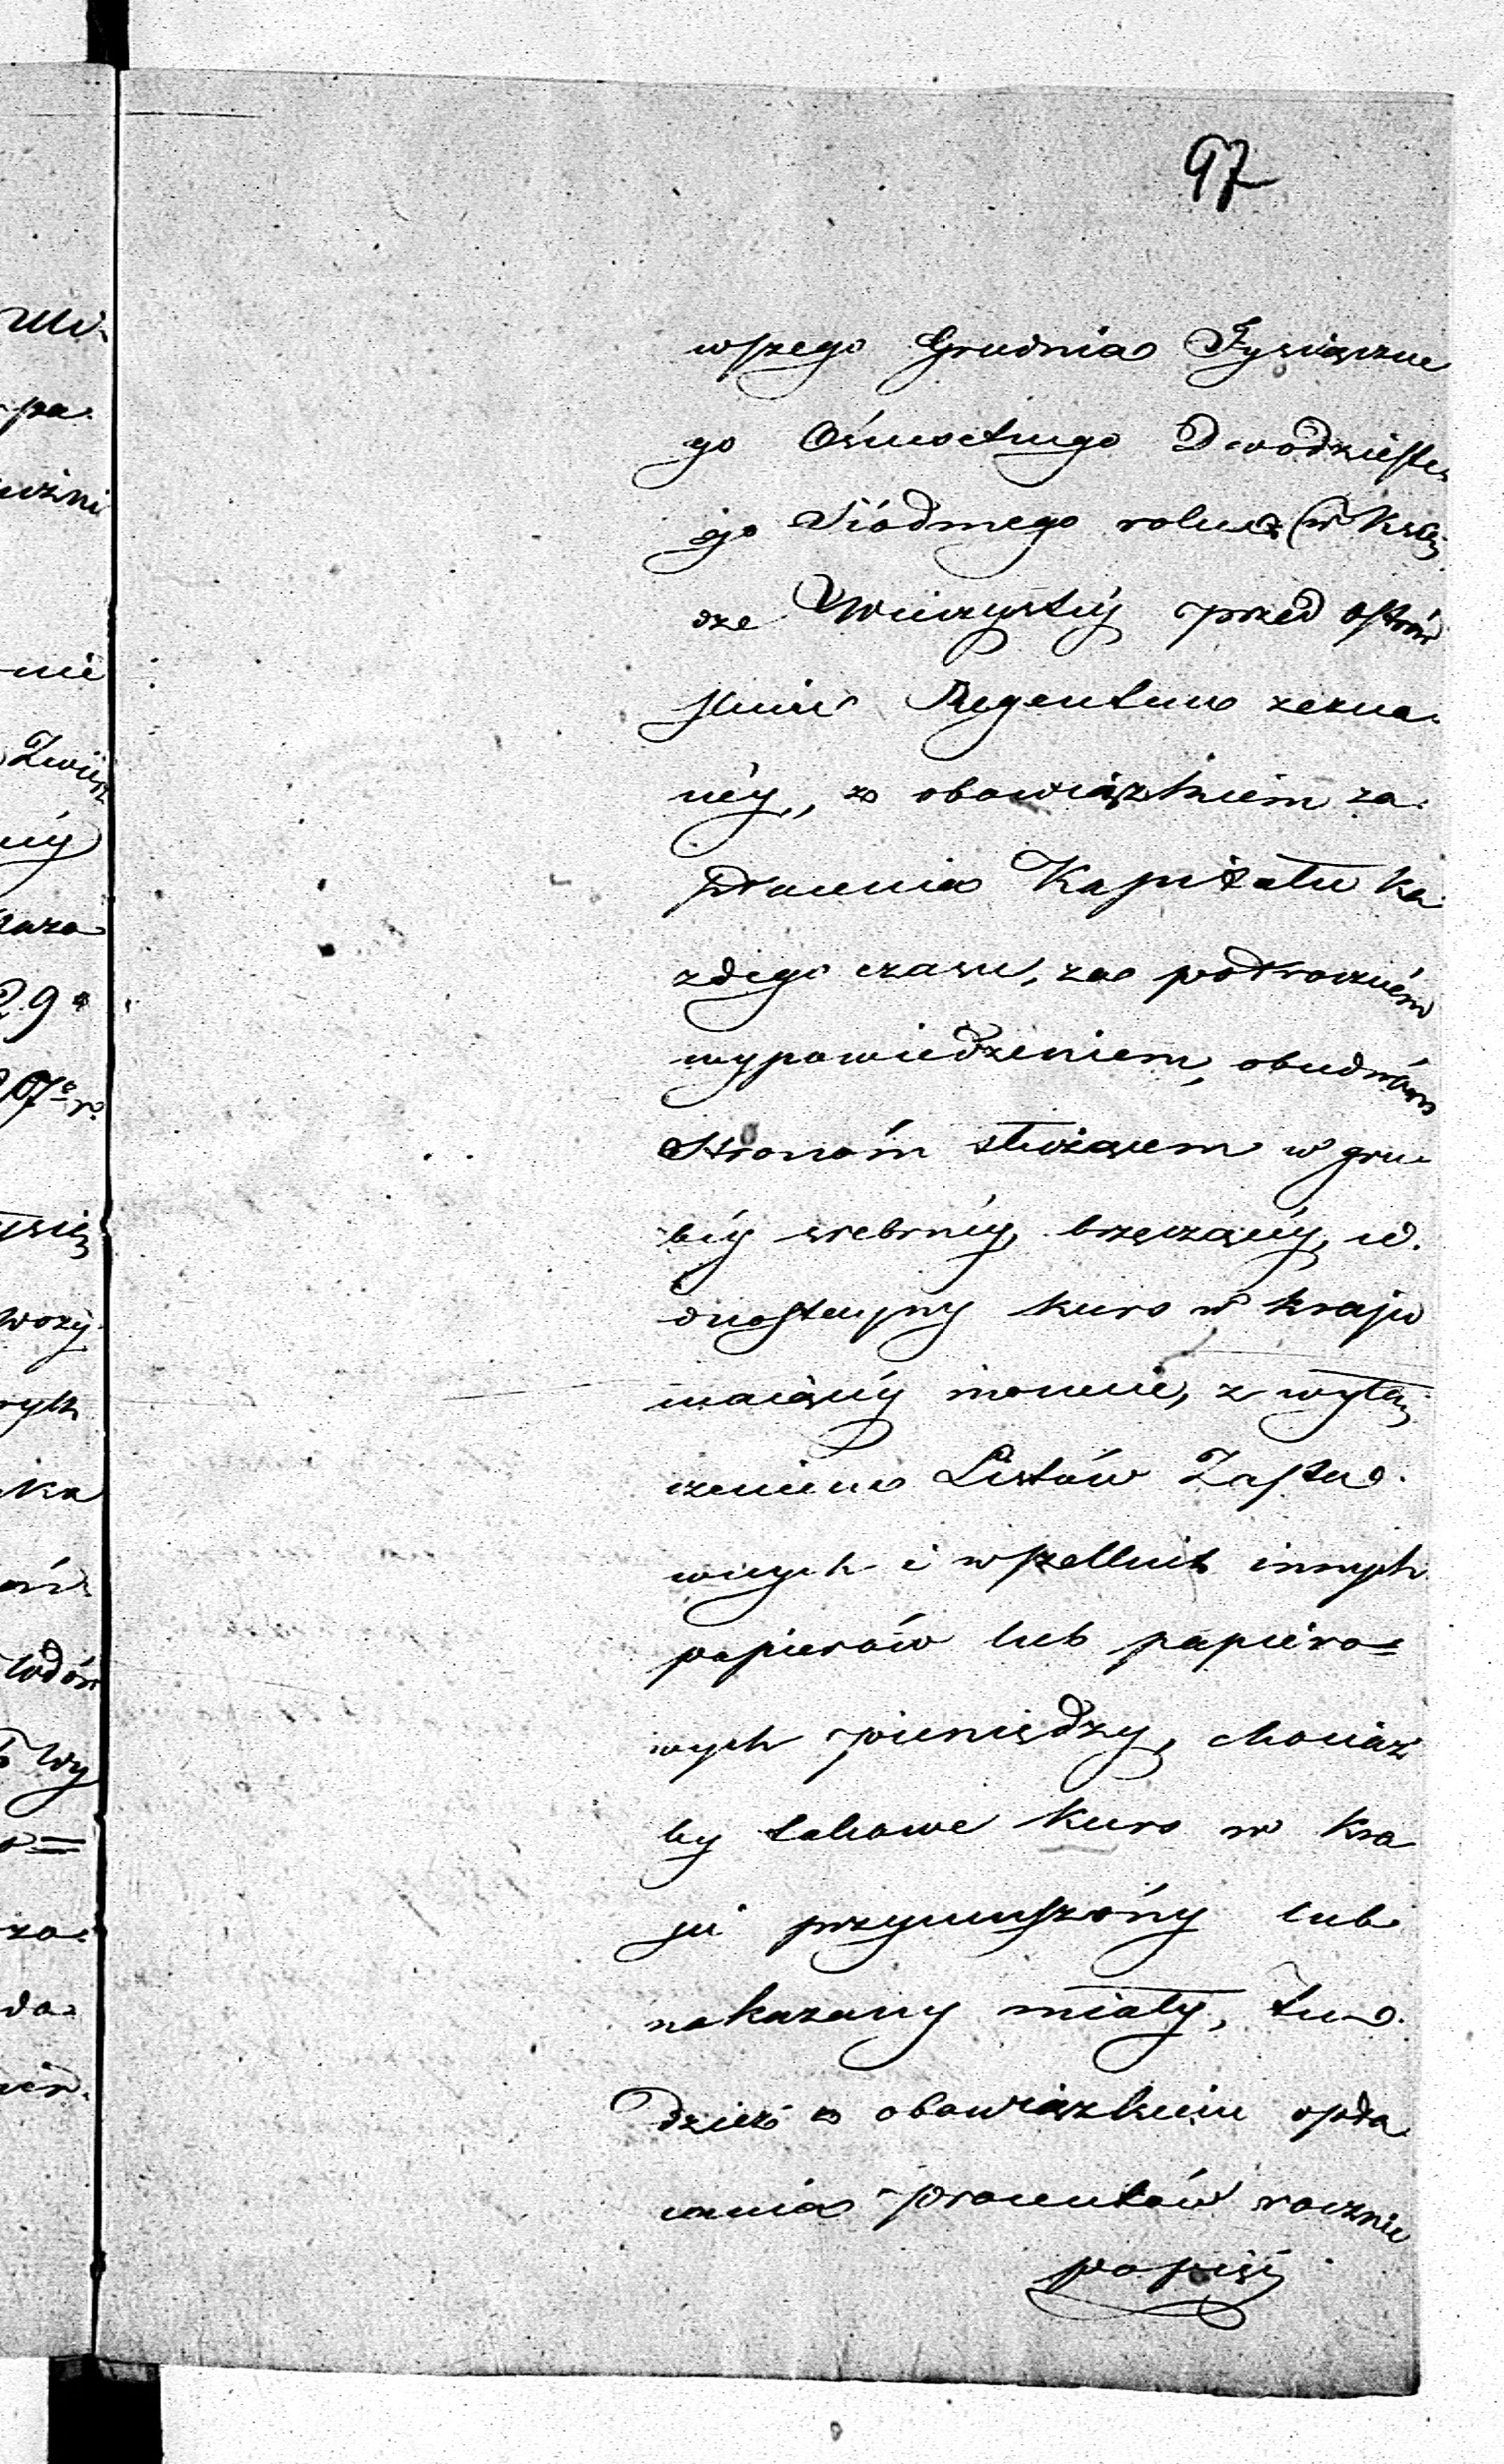 97
wszego Grudnia Tysiączne
go Ośmsetnego Dwódzieste
go Siódmego roku (w Księ
dze Wieczystéy przed
Regentem zezna-
néy, z obowiązkiem za-
płacenia Kapitału ka
żdego czasu, za półrocznem
wypowiedzeniem, obudwóm
Stronóm służącem w gru-
béy srebrnéy, brzęczącéy, w
kurs w kraju
maiącéy monecie, z wyłą
czeniem Listów Zasta
wnych i wszelkich innych
papierów lub papiero=
wych pieniędzy, chociaż
by takowe kurs w kra
ju przymuszóny lub
nakazany miały, tu
dzież z obowiązkiem opła
cania procentów rocznie
po pięć
29
pa
nie
ka
za
da
Wy